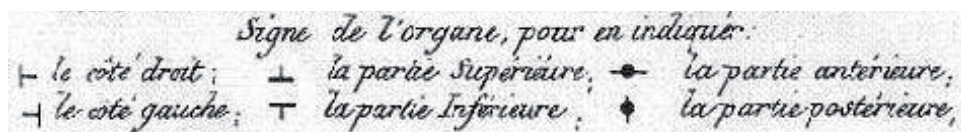 Signe de l'organe, pour en indiquer:
⊢ le côté droit; ⊥ la partie Supérieure; la partie antérieure;
⊣ le coté gauche; ⊤ la partie Inférieure; la partie postérieure,